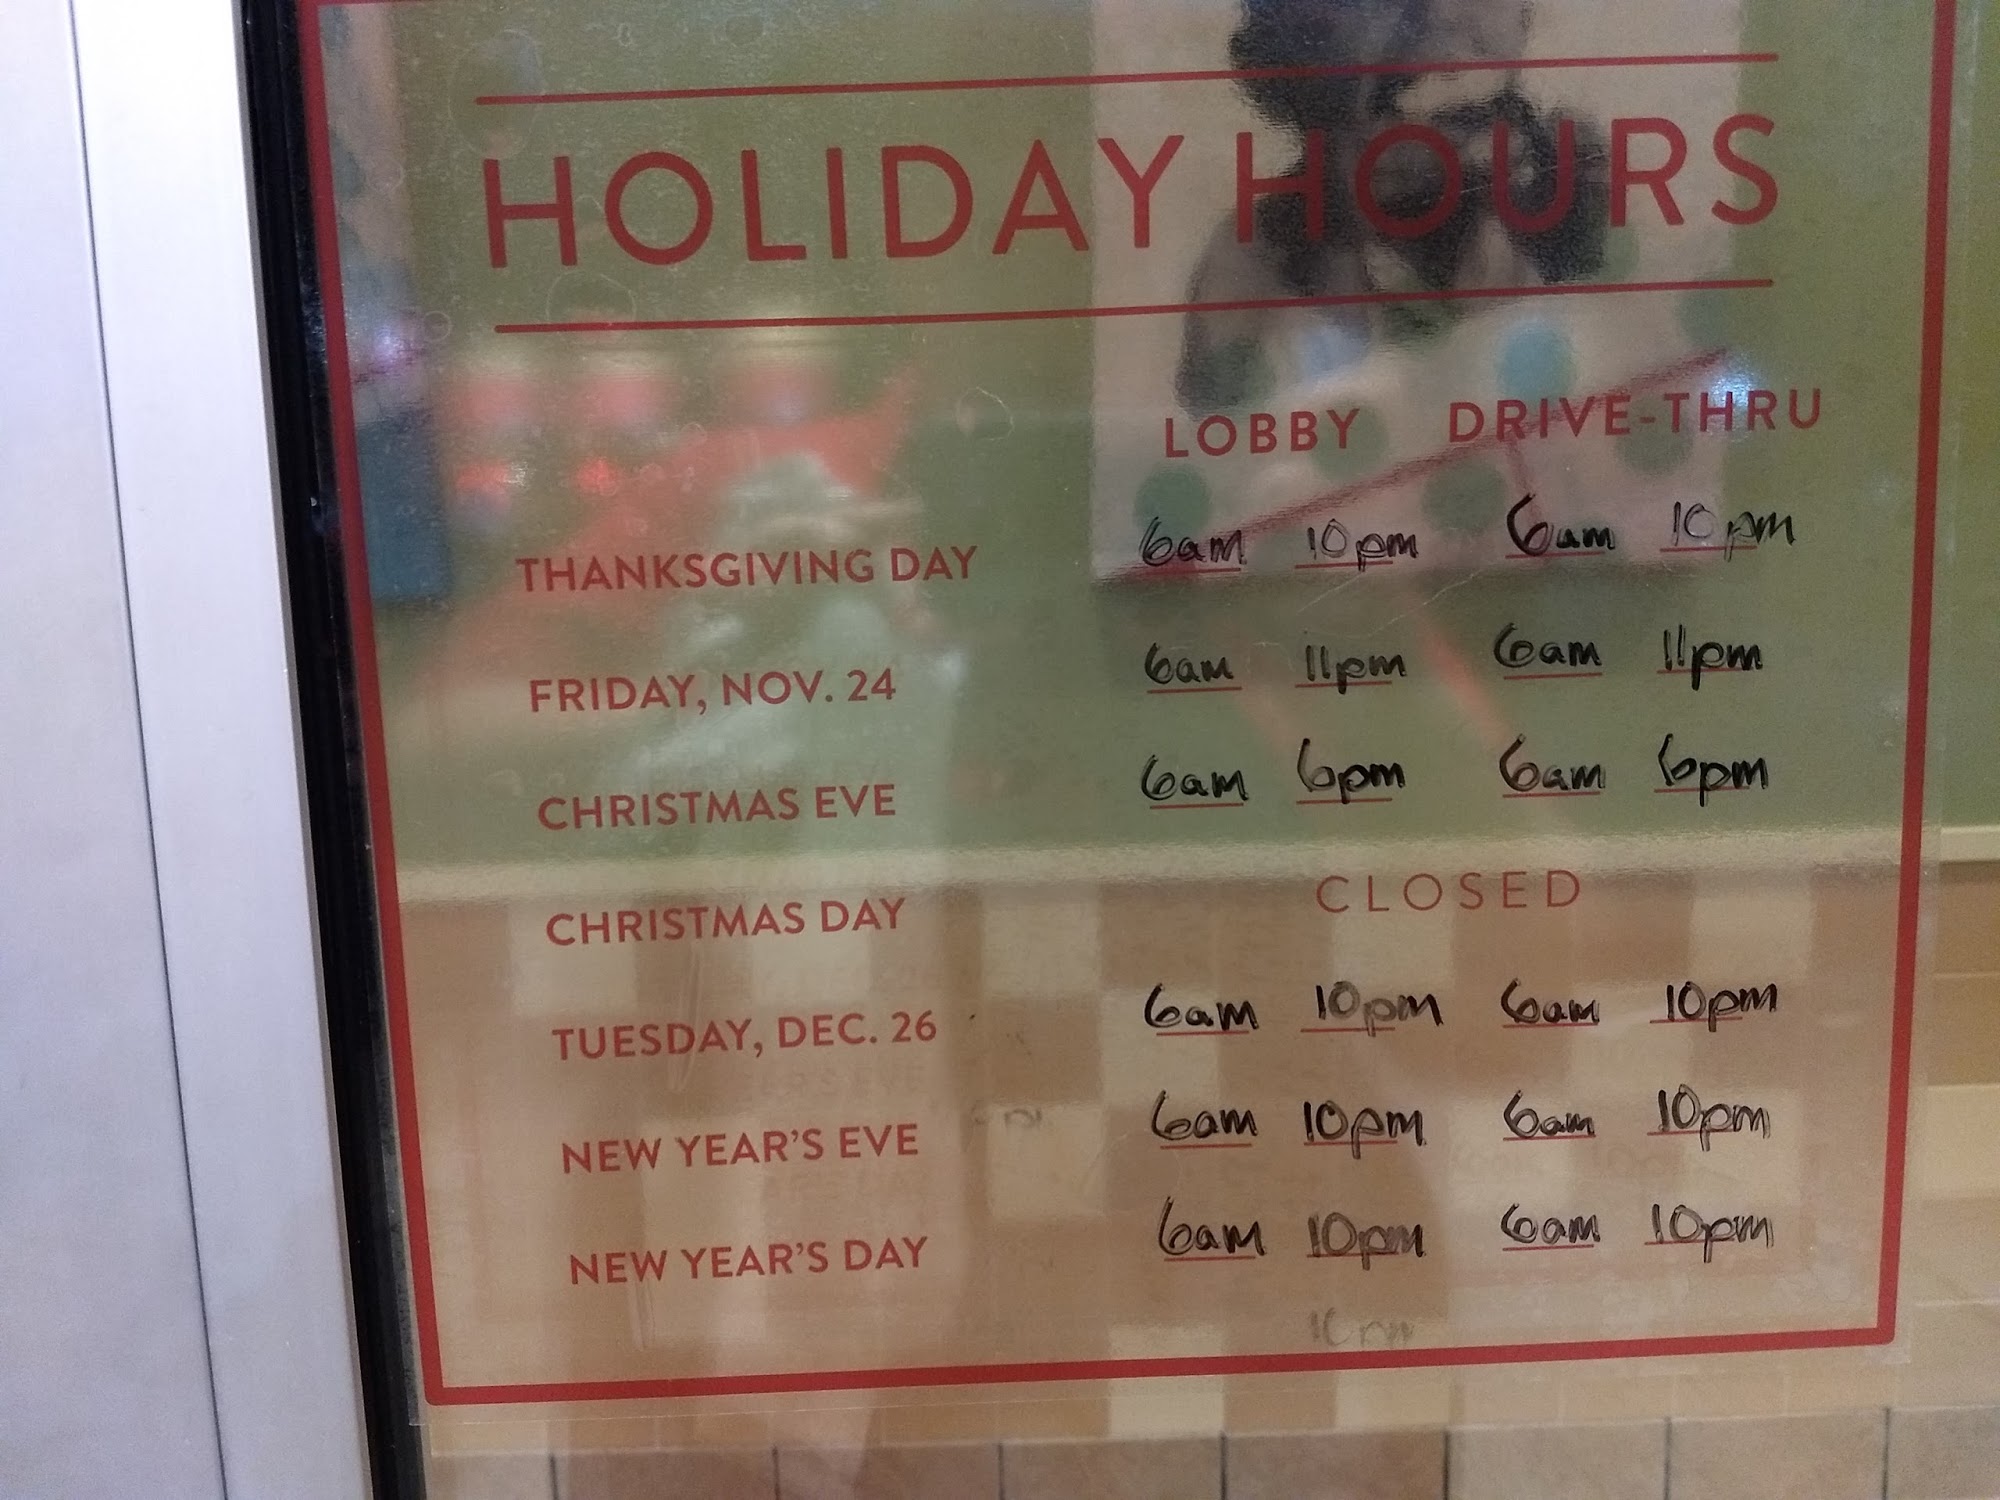 HOLIDAY HOURS
LOBBY DRIVE-THRU
THANKSGIVING DAY 6am 10pm 6am 10pm
FRIDAY, NOV. 24 6am 11pm 6am 11pm
CHRISTMAS EVE 6am 6pm 6am 6pm
CHRISTMAS DAY CLOSED
TUESDAY, DEC. 26 6am 10pm 6am 10pm
NEW YEAR'S EVE 6am 10pm 6am 10pm
NEW YEAR'S DAY 6am 10pm 6am 10pm
10pm